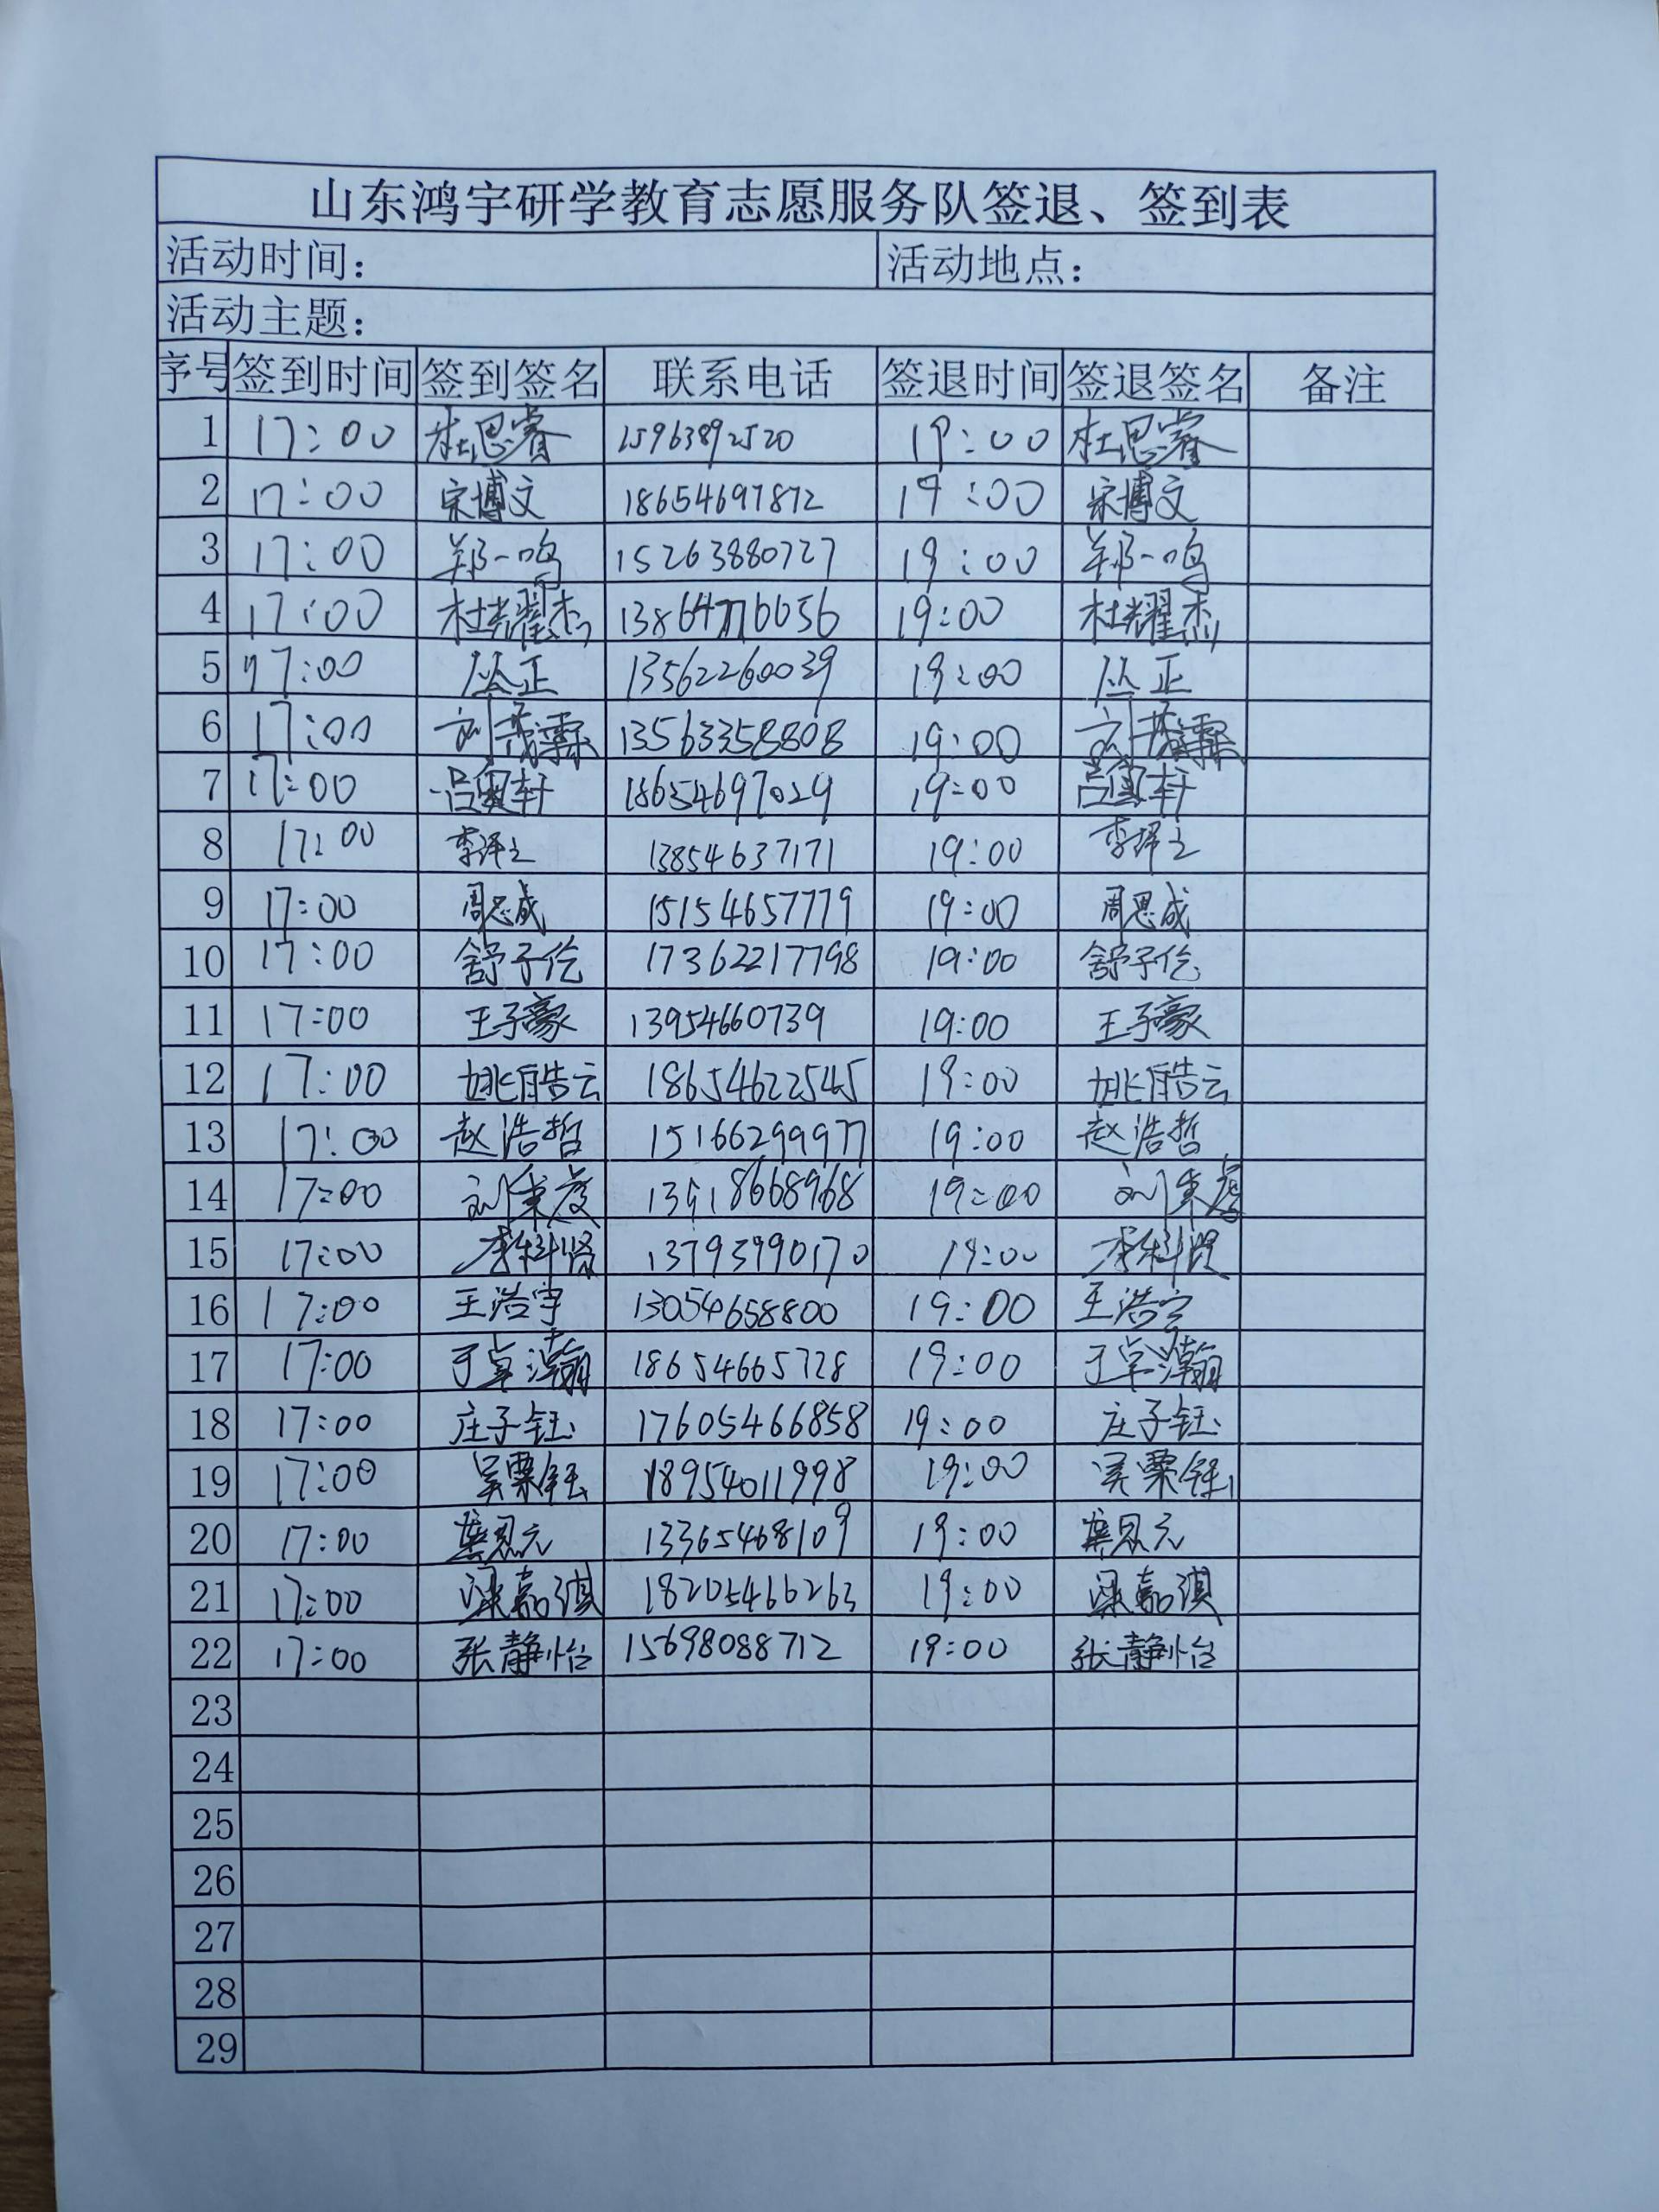 山东鸿宇研学教育志愿服务队签退、签到表
活动时间： 活动地点：
活动主题：
序号 签到时间 签到签名 联系电话 签退时间 签退签名 备注
1 17:00 杜思睿 15963892520 19:00 杜思睿
2 17:00 宋博文 18654697872 19:00 宋博文
3 17:00 郑一鸣 15263880727 19:00 郑一鸣
4 17:00 杜耀杰 13864776056 19:00 杜耀杰
5 17:00 丛正 13562260039 19:00 丛正
6 17:00 刘茂霖 13563358808 19:00 刘茂霖
7 17:00 吕奥轩 18654697029 19:00 吕奥轩
8 17:00 李泽之 13854637171 19:00 李泽之
9 17:00 周思成 15154657779 19:00 周思成
10 17:00 舒子仡 17362217798 19:00 舒子仡
11 17:00 王子豪 13954660739 19:00 王子豪
12 17:00 姚皓云 18654622545 19:00 姚皓云
13 17:00 赵浩哲 15166299977 19:00 赵浩哲
14 17:00 刘秉虔 19:00 刘秉虔
15 17:00 李科贤 13793990170 19:00 李科贤
16 17:00 王浩宇 13054658800 19:00 王浩宇
17 17:00 于卓瀚 18654665728 19:00 于卓瀚
18 17:00 庄子钰 17605466858 19:00 庄子钰
19 17:00 吴粟钰 18954011998 19:00 吴粟钰
20 17:00 13365468109 19:00
21 17:00 梁嘉淇 18205466263 19:00 梁嘉淇
22 17:00 张静怡 15698088712 19:00 张静怡
23
24
25
26
27
28
29